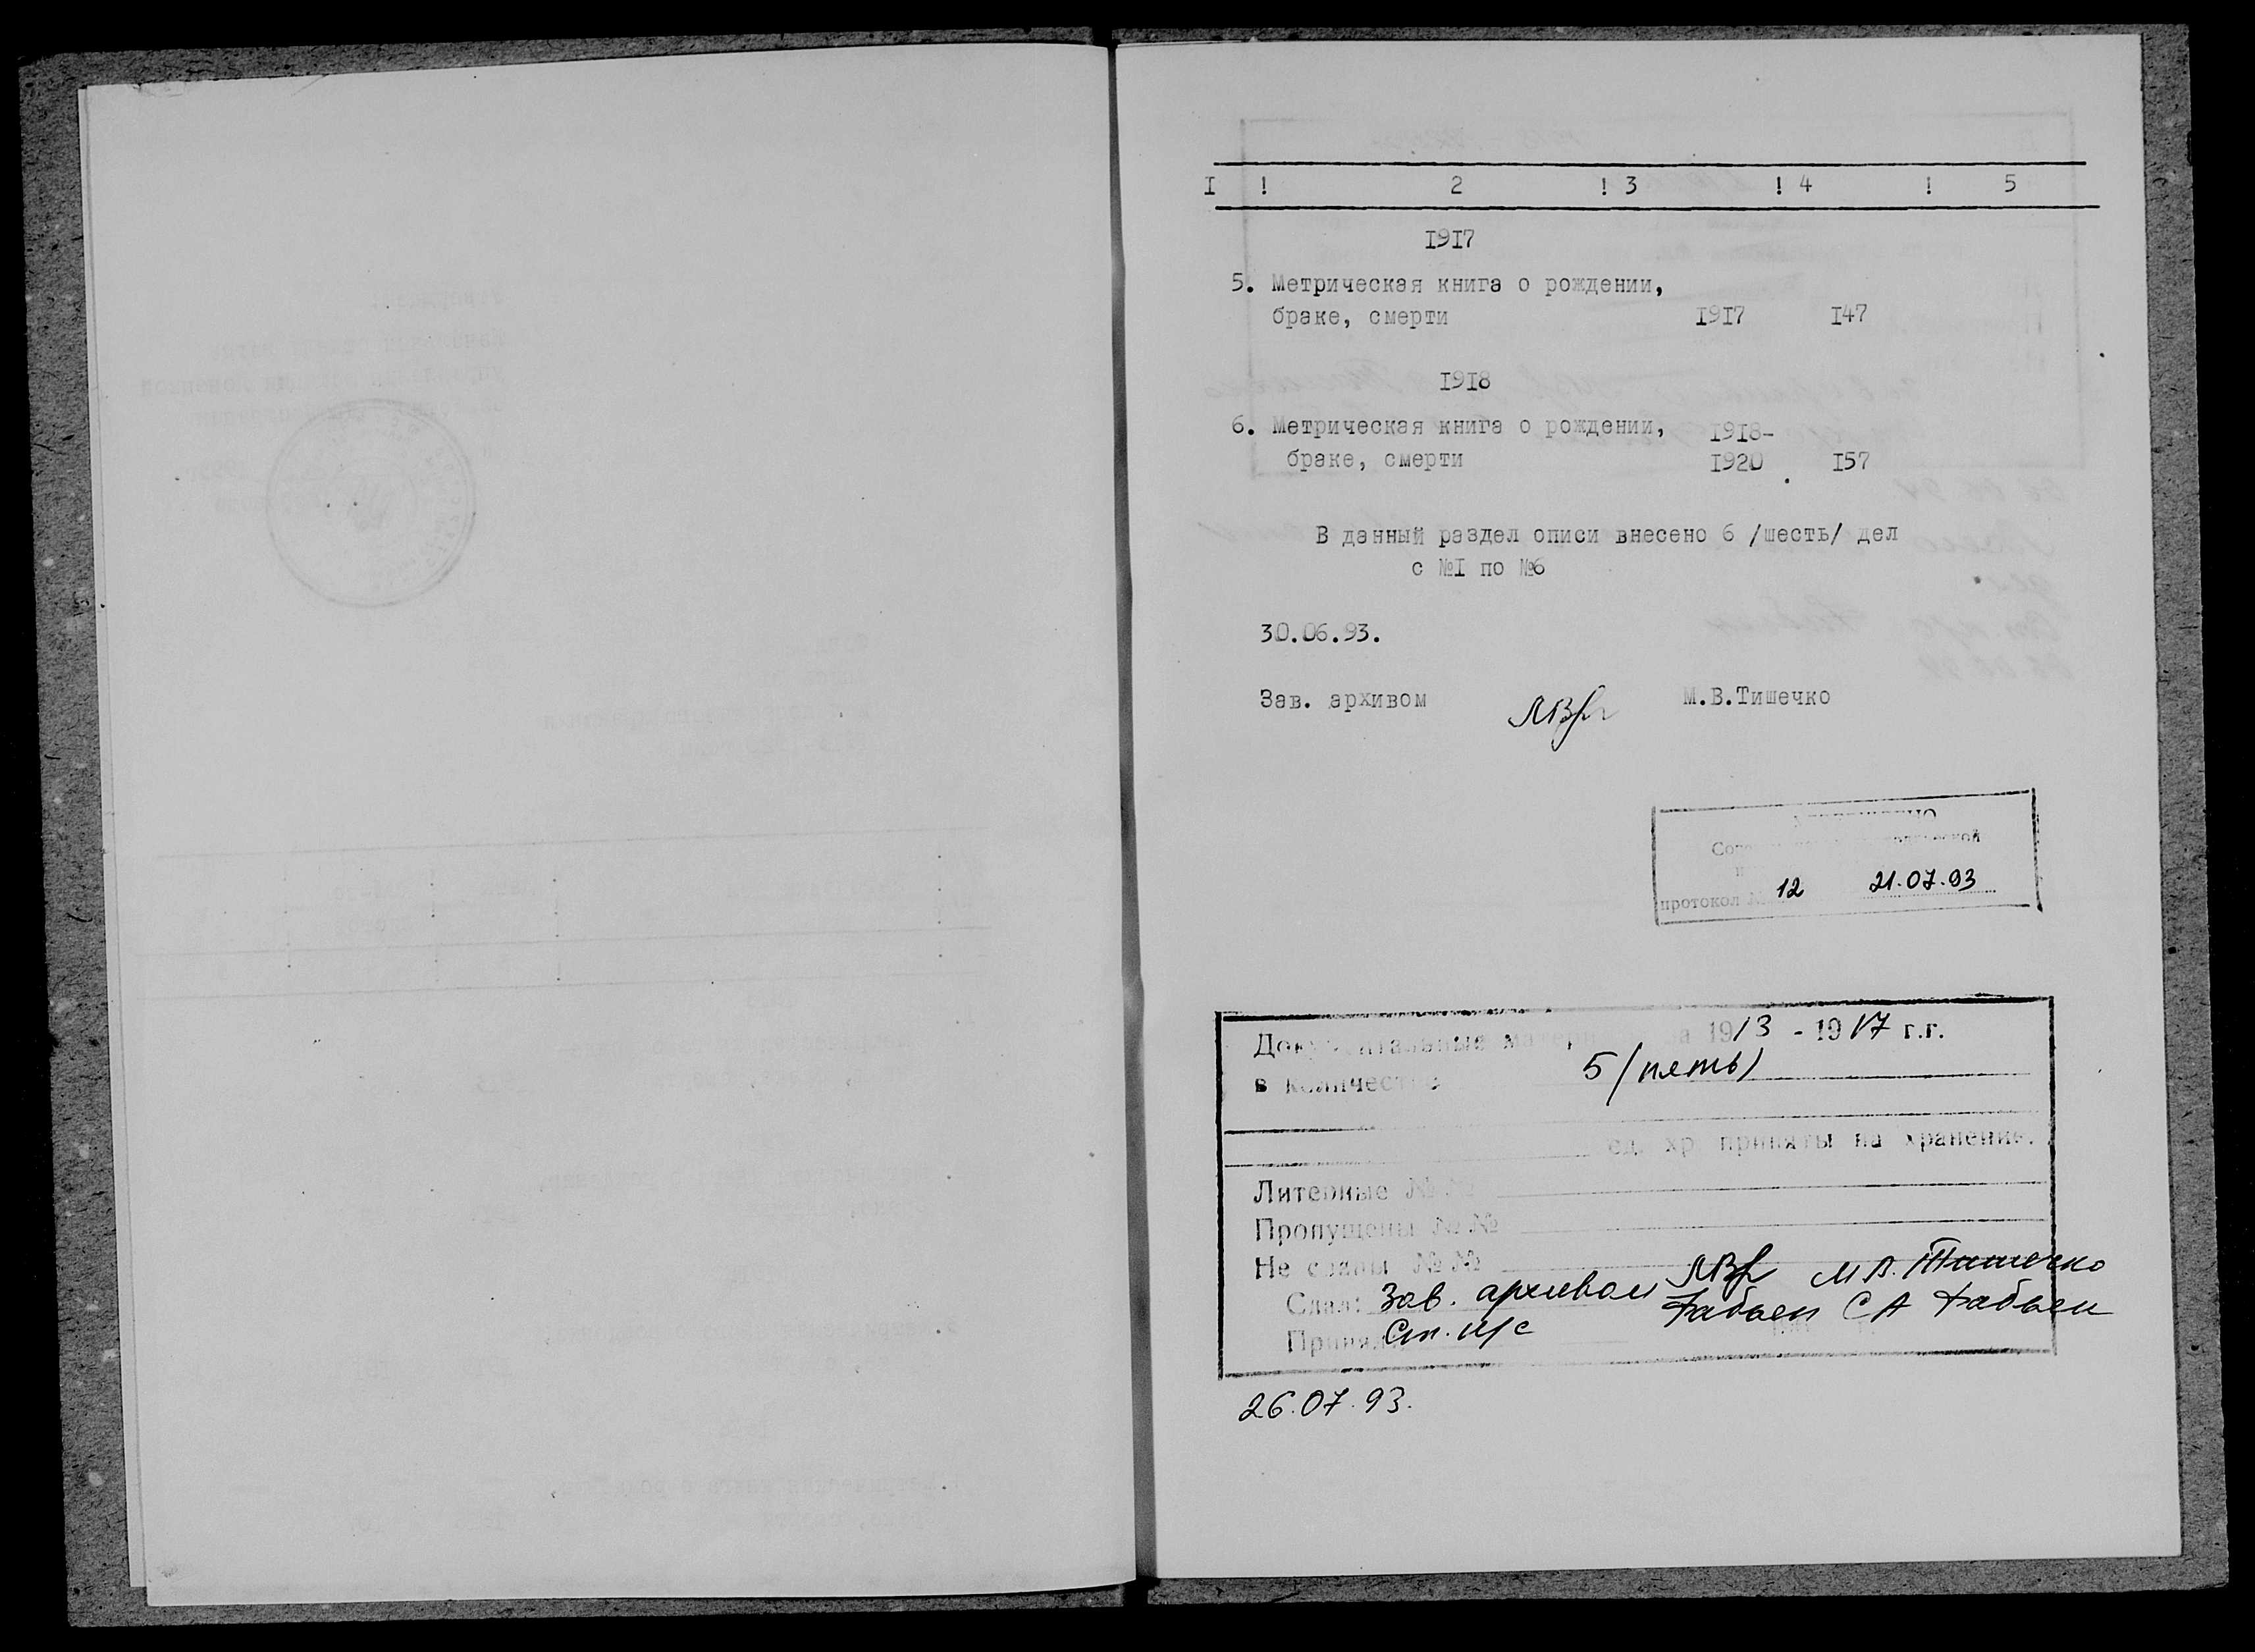 I ! 2 ! 3 ! 4 ! 5
1917
5. Метрическая книга о рождении,
браке, смерти 1917 147
1918
6. Метрическая книга о рождении, 1918-
браке, смерти 1920 157
В данный раздел описи внесено 6 /шесть/ дел
с №I по №6
30.06.93.
Зав. архивом М.В.Тишечко
протокол № 12 21.07.93
Документальные за 1913 - 1917 г.г.
в количестве 5 (пять)
ед. хр. приняты на хранение.
Литерные №№
Пропущены №№
Не сданы №№
Сдал: Зав. архивом М.В. Тишечко
Принял: Ст. н/с С А
26.07.93.